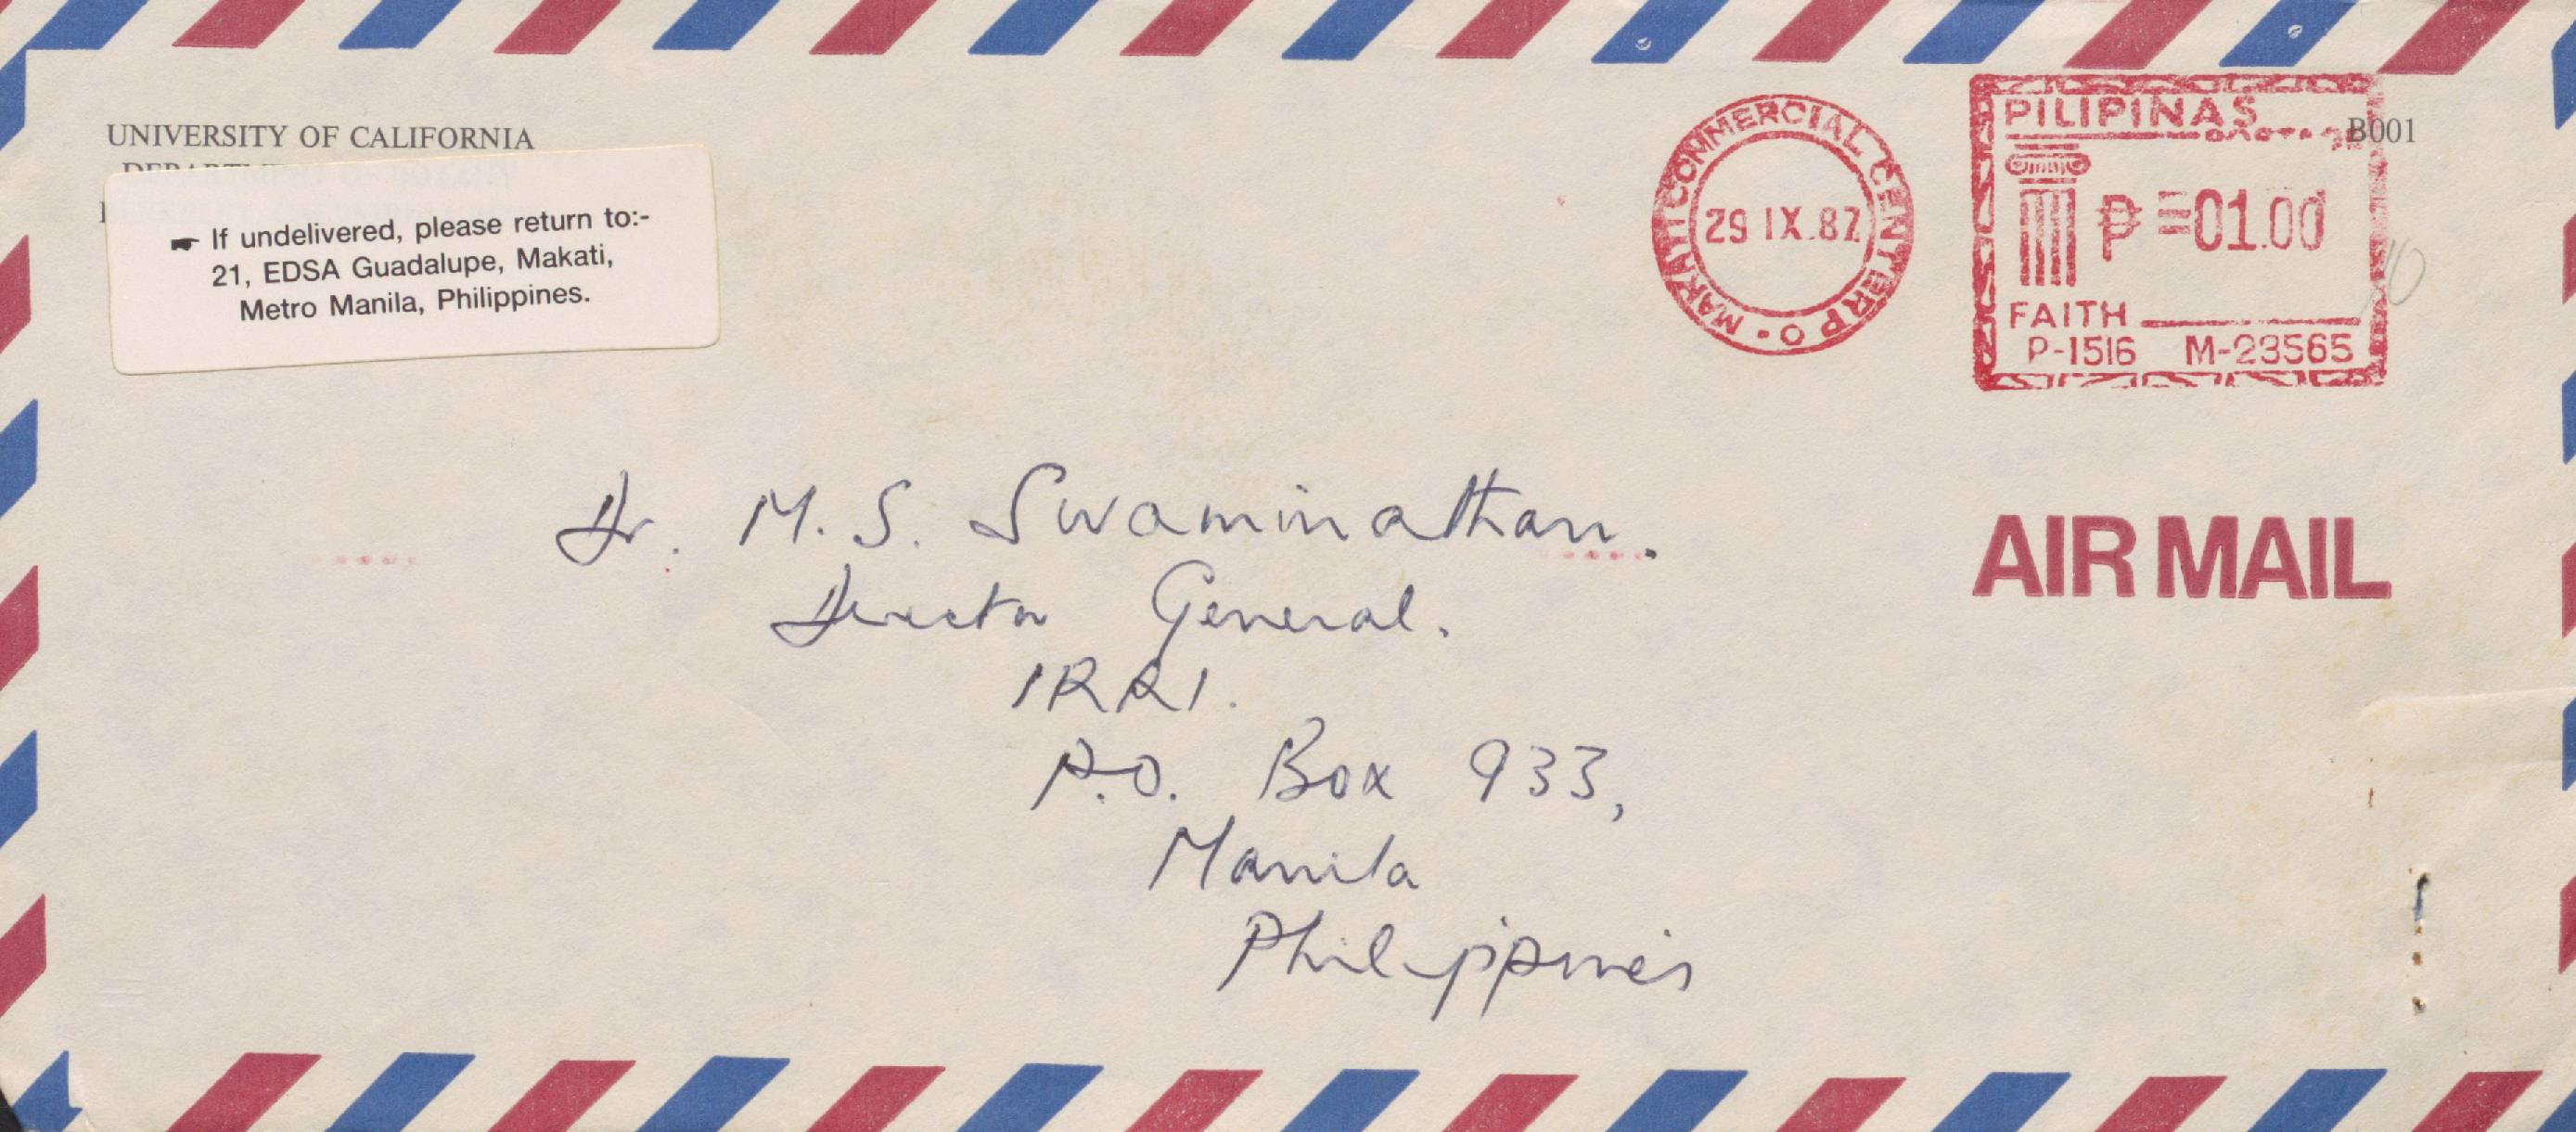 UNIVERSITY OF CALIFORNIA
If undelivered, please return to:-
21, EDSA Guadalupe, Makati,
Metro Manila, Philippines.
MAKATI COMMERCIAL CENTER P O
29 IX.87
PILIPINAS
B001
₱ =01.00
FAITH
P-1516 M-23565
AIR MAIL
Dr. M. S. Swaminathan.
Director General.
IRRI.
P.O. Box 933,
Manila
Philippines